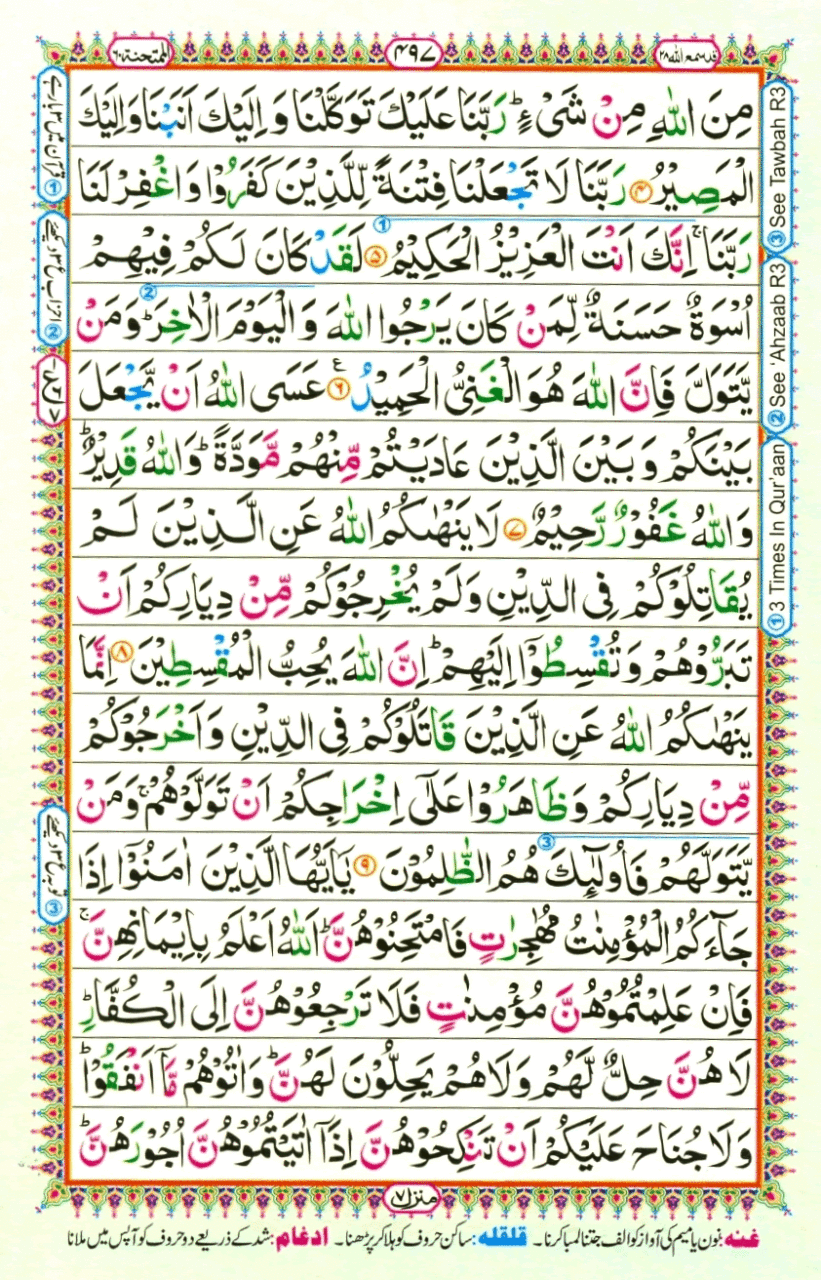 قد سمع الله ٢٨
٤٩٧
الممتحنة ٦٠
مِنَ اللّٰهِ مِنْ شَیْءٍ ؕ رَبَّنَا عَلَیْكَ تَوَكَّلْنَا وَ اِلَیْكَ اَنَبْنَا وَاِلَیْكَ
الْمَصِیْرُ ۴ رَبَّنَا لَا تَجْعَلْنَا فِتْنَةً لِّلَّذِیْنَ كَفَرُوْا وَ اغْفِرْ لَنَا
رَبَّنَا ۚ اِنَّكَ اَنْتَ الْعَزِیْزُ الْحَكِیْمُ ۵ لَقَدْ كَانَ لَكُمْ فِیْهِمْ
اُسْوَةٌ حَسَنَةٌ لِّمَنْ كَانَ یَرْجُوا اللّٰهَ وَ الْیَوْمَ الْاٰخِرَ ؕ وَمَنْ
یَّتَوَلَّ فَاِنَّ اللّٰهَ هُوَ الْغَنِیُّ الْحَمِیْدُ ۶ عَسَی اللّٰهُ اَنْ یَّجْعَلَ
بَیْنَكُمْ وَ بَیْنَ الَّذِیْنَ عَادَیْتُمْ مِّنْهُمْ مَّوَدَّةً ؕ وَاللّٰهُ قَدِیْرٌ ؕ
وَاللّٰهُ غَفُوْرٌ رَّحِیْمٌ ۷ لَا یَنْهٰىكُمُ اللّٰهُ عَنِ الَّذِیْنَ لَمْ
یُقَاتِلُوْكُمْ فِی الدِّیْنِ وَلَمْ یُخْرِجُوْكُمْ مِّنْ دِیَارِكُمْ اَنْ
تَبَرُّوْهُمْ وَ تُقْسِطُوْۤا اِلَیْهِمْ ؕ اِنَّ اللّٰهَ یُحِبُّ الْمُقْسِطِیْنَ ۸ اِنَّمَا
یَنْهٰىكُمُ اللّٰهُ عَنِ الَّذِیْنَ قَاتَلُوْكُمْ فِی الدِّیْنِ وَ اَخْرَجُوْكُمْ
مِّنْ دِیَارِكُمْ وَ ظَاهَرُوْا عَلٰۤی اِخْرَاجِكُمْ اَنْ تَوَلَّوْهُمْ ۚ وَمَنْ
یَّتَوَلَّهُمْ فَاُولٰٓئِكَ هُمُ الظّٰلِمُوْنَ ۹ یٰۤاَیُّهَا الَّذِیْنَ اٰمَنُوْۤا اِذَا
جَآءَكُمُ الْمُؤْمِنٰتُ مُهٰجِرٰتٍ فَامْتَحِنُوْهُنَّ ؕ اَللّٰهُ اَعْلَمُ بِاِیْمَانِهِنَّ ۚ
فَاِنْ عَلِمْتُمُوْهُنَّ مُؤْمِنٰتٍ فَلَا تَرْجِعُوْهُنَّ اِلَی الْكُفَّارِ ؕ
لَا هُنَّ حِلٌّ لَّهُمْ وَلَا هُمْ یَحِلُّوْنَ لَهُنَّ ؕ وَ اٰتُوْهُمْ مَّاۤ اَنْفَقُوْا ؕ
وَلَا جُنَاحَ عَلَیْكُمْ اَنْ تَنْكِحُوْهُنَّ اِذَاۤ اٰتَیْتُمُوْهُنَّ اُجُوْرَهُنَّ ؕ
③ See Tawbah R3
② See 'Ahzaab R3
① 3 Times In Qur'aan
قرآن میں ۳ بار ہے ①
احزاب ع ۳ دیکھیے ②
توبہ ع ۳ دیکھیے ③
منزل ٧
غنه: نون یا میم کی آواز کو الف جتنا لمبا کرنا۔ قلقله: ساکن حروف کو ہلا کر پڑھنا۔ ادغام: شد کے ذریعے دو حروف کو آپس میں ملانا